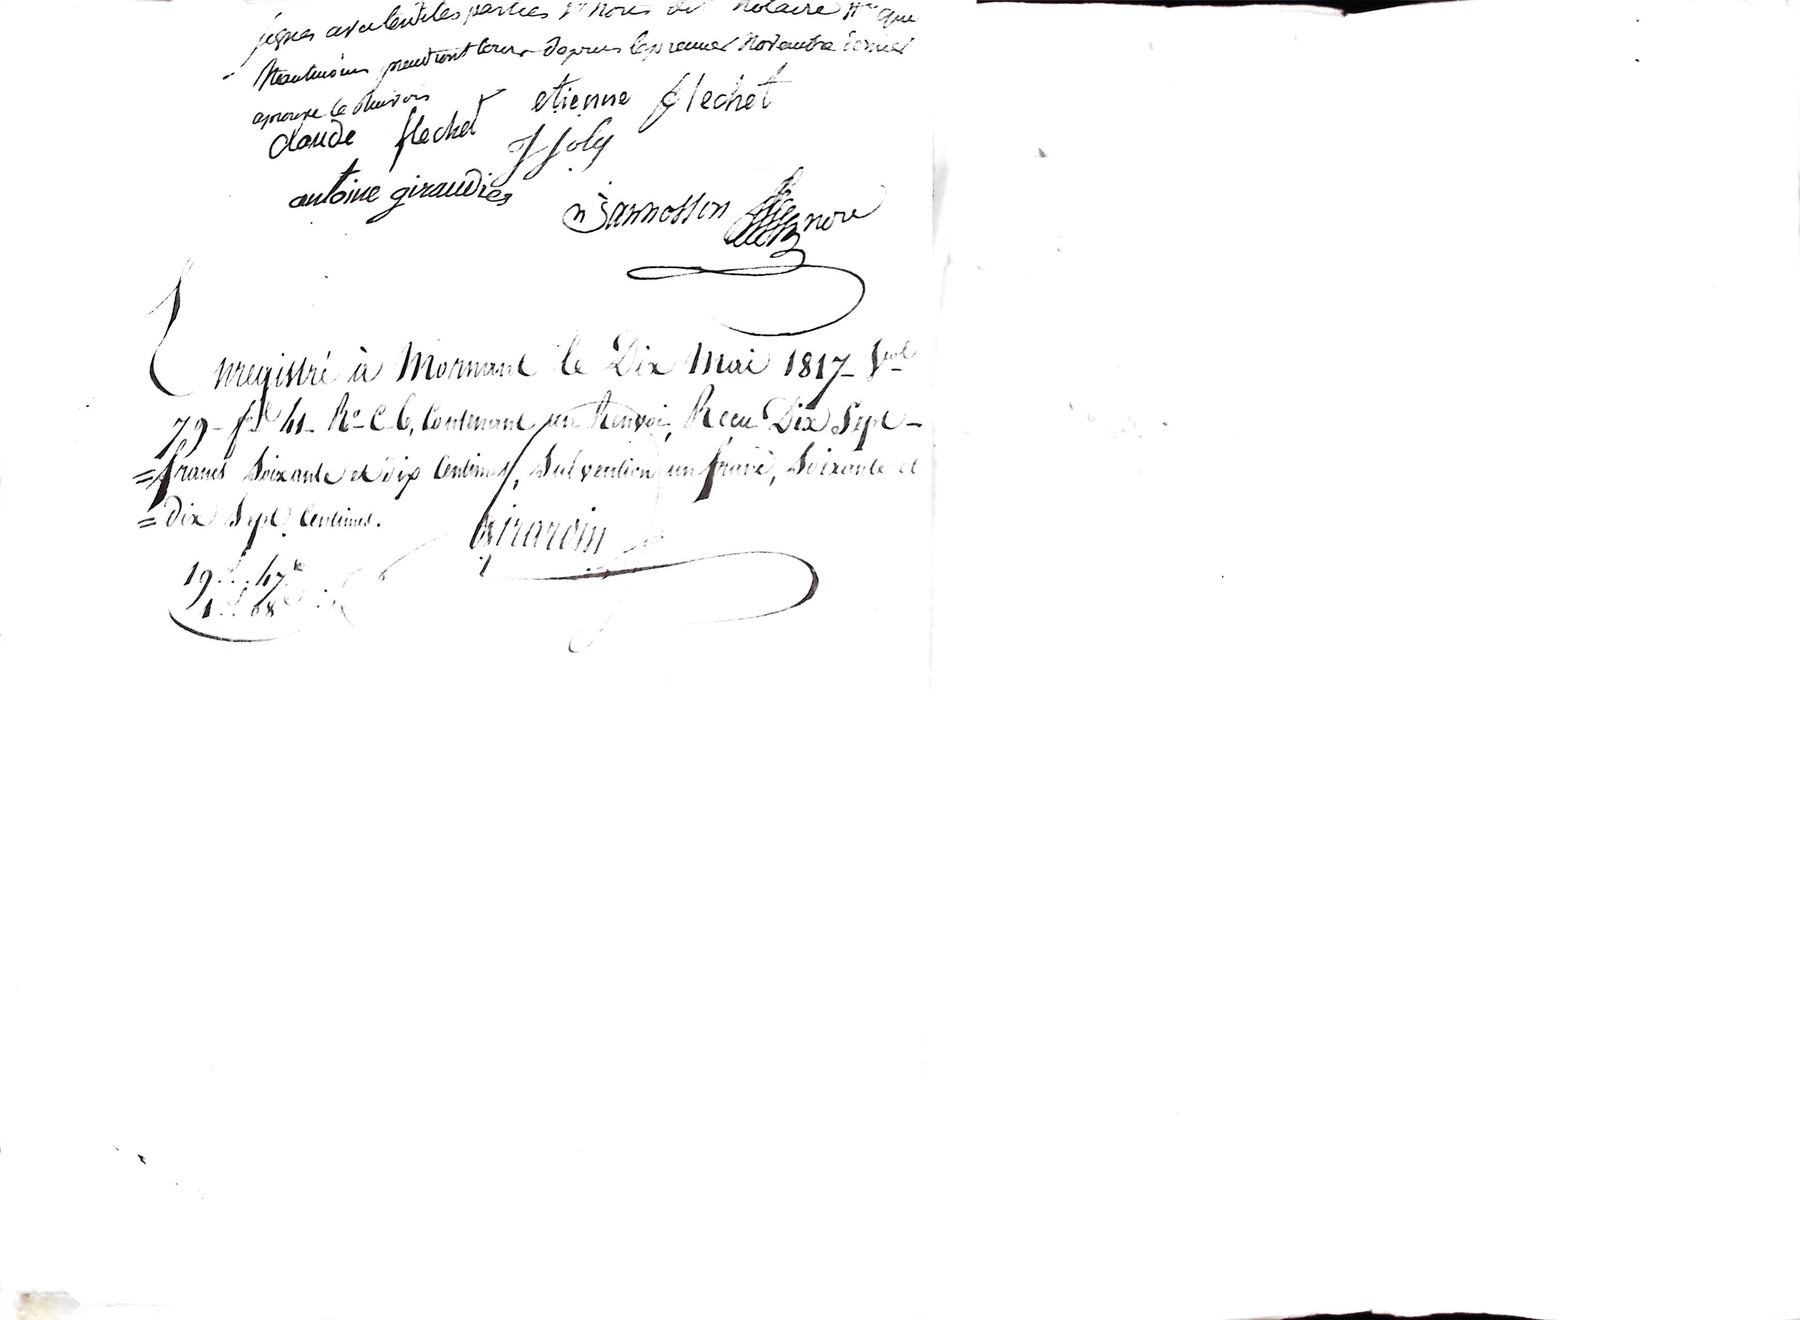 signes avec lesdites parties et nous dit notaire que
Neantmoins prendront cours depuis le premier Novembre dernier
aprouve le Renvois
etienne flechet
claude flechet
J Joly
antoine giraudier
Jannosson
Enregistré à Mornant le Dix Mai 1817_ Vol
79_ fol 41_ Ro C 6, Contenant un Renvoi, Recu Dix Sept_
= francs Soixante et dix Centimes, Subvention un franc, Soixante et
= Dix Sept Centimes.
Girardin
19.. 47
1.. 68